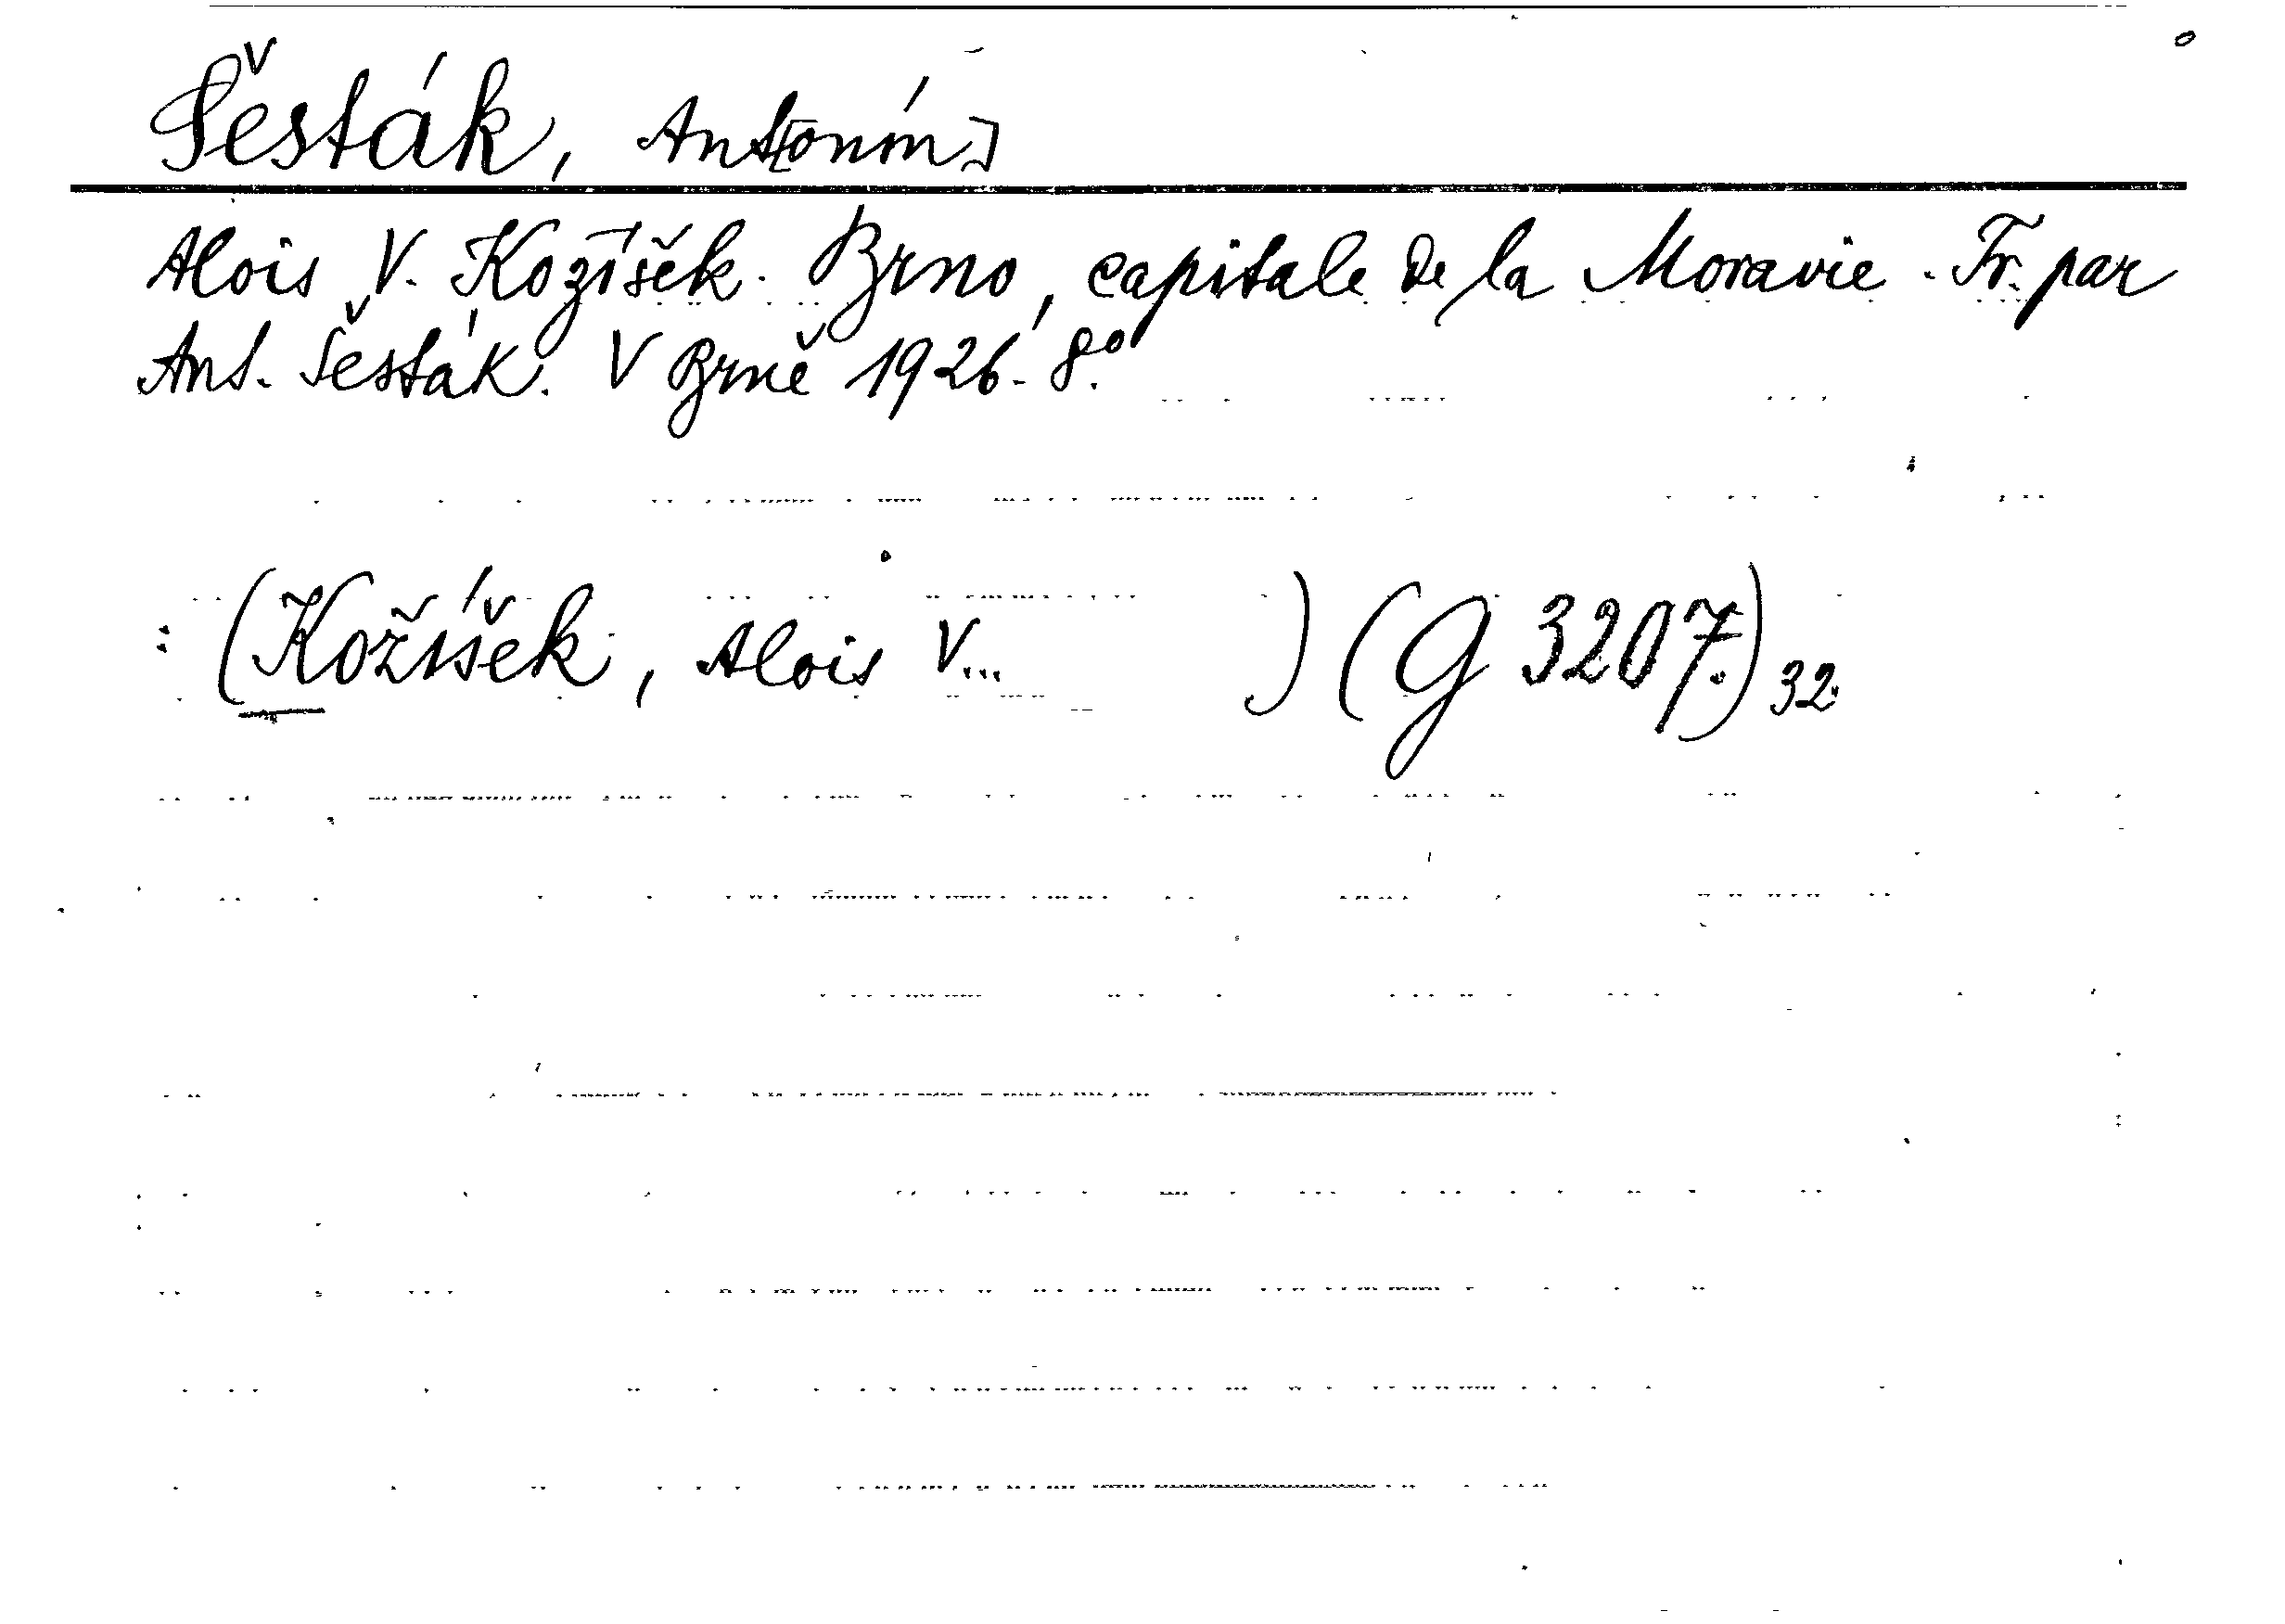 Šesták, Ant[onín]
Alois V. Kožíšek. Brno, capitale de la Moravie. Tr. par
Ant. Šesták. V Brně 1926. 8.º
(Kožíšek, Alois V... ) (G 3207.) 32.